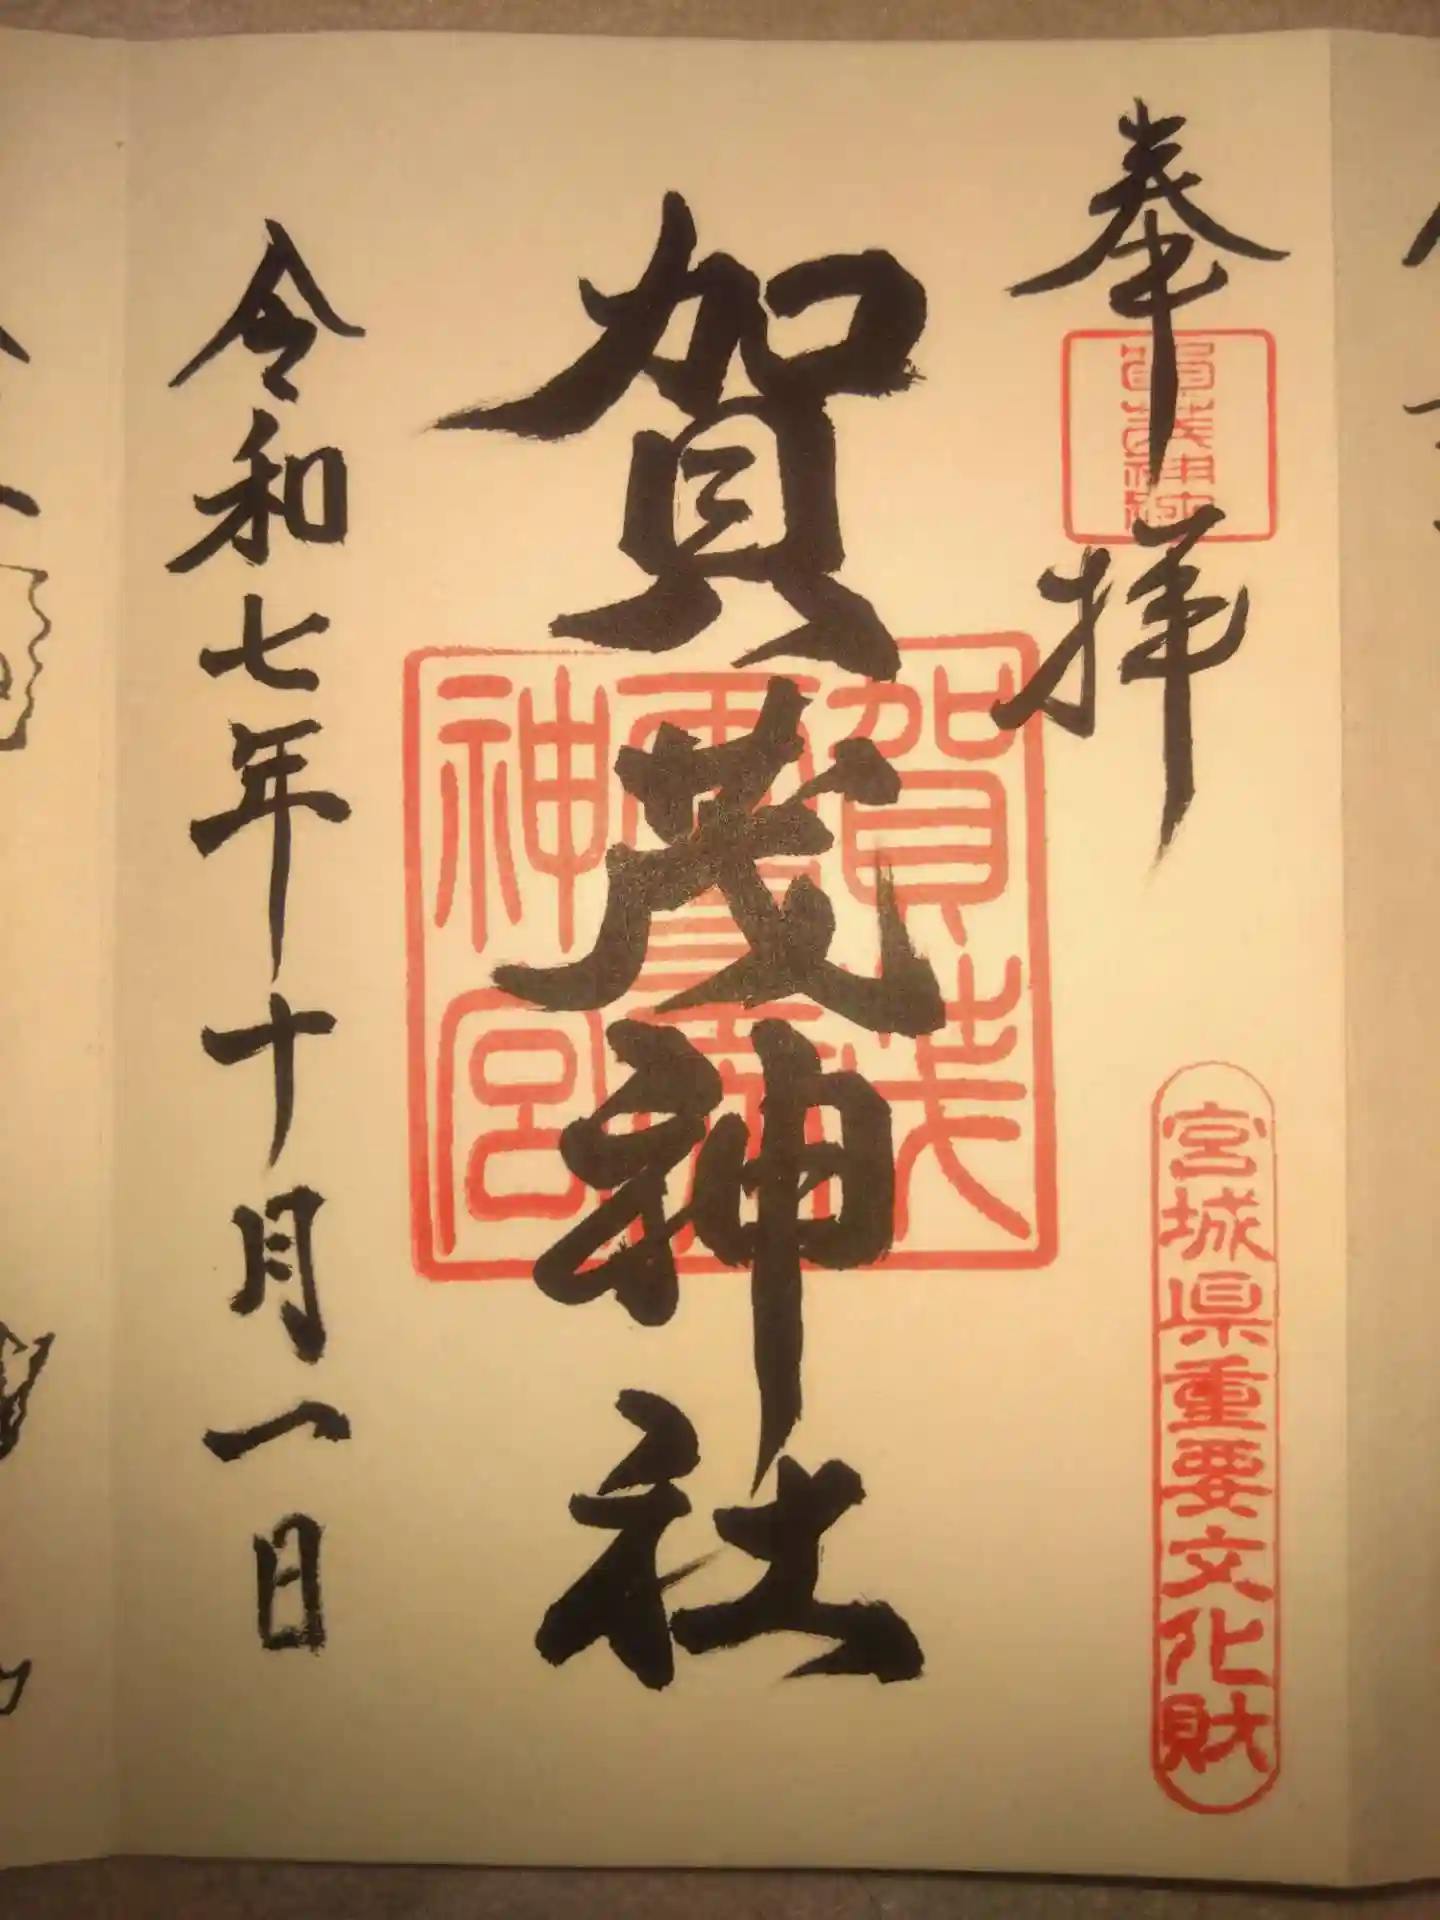 奉拝
宮城県重要文化財
賀茂神社
賀茂
神宮
令和七年十月一日